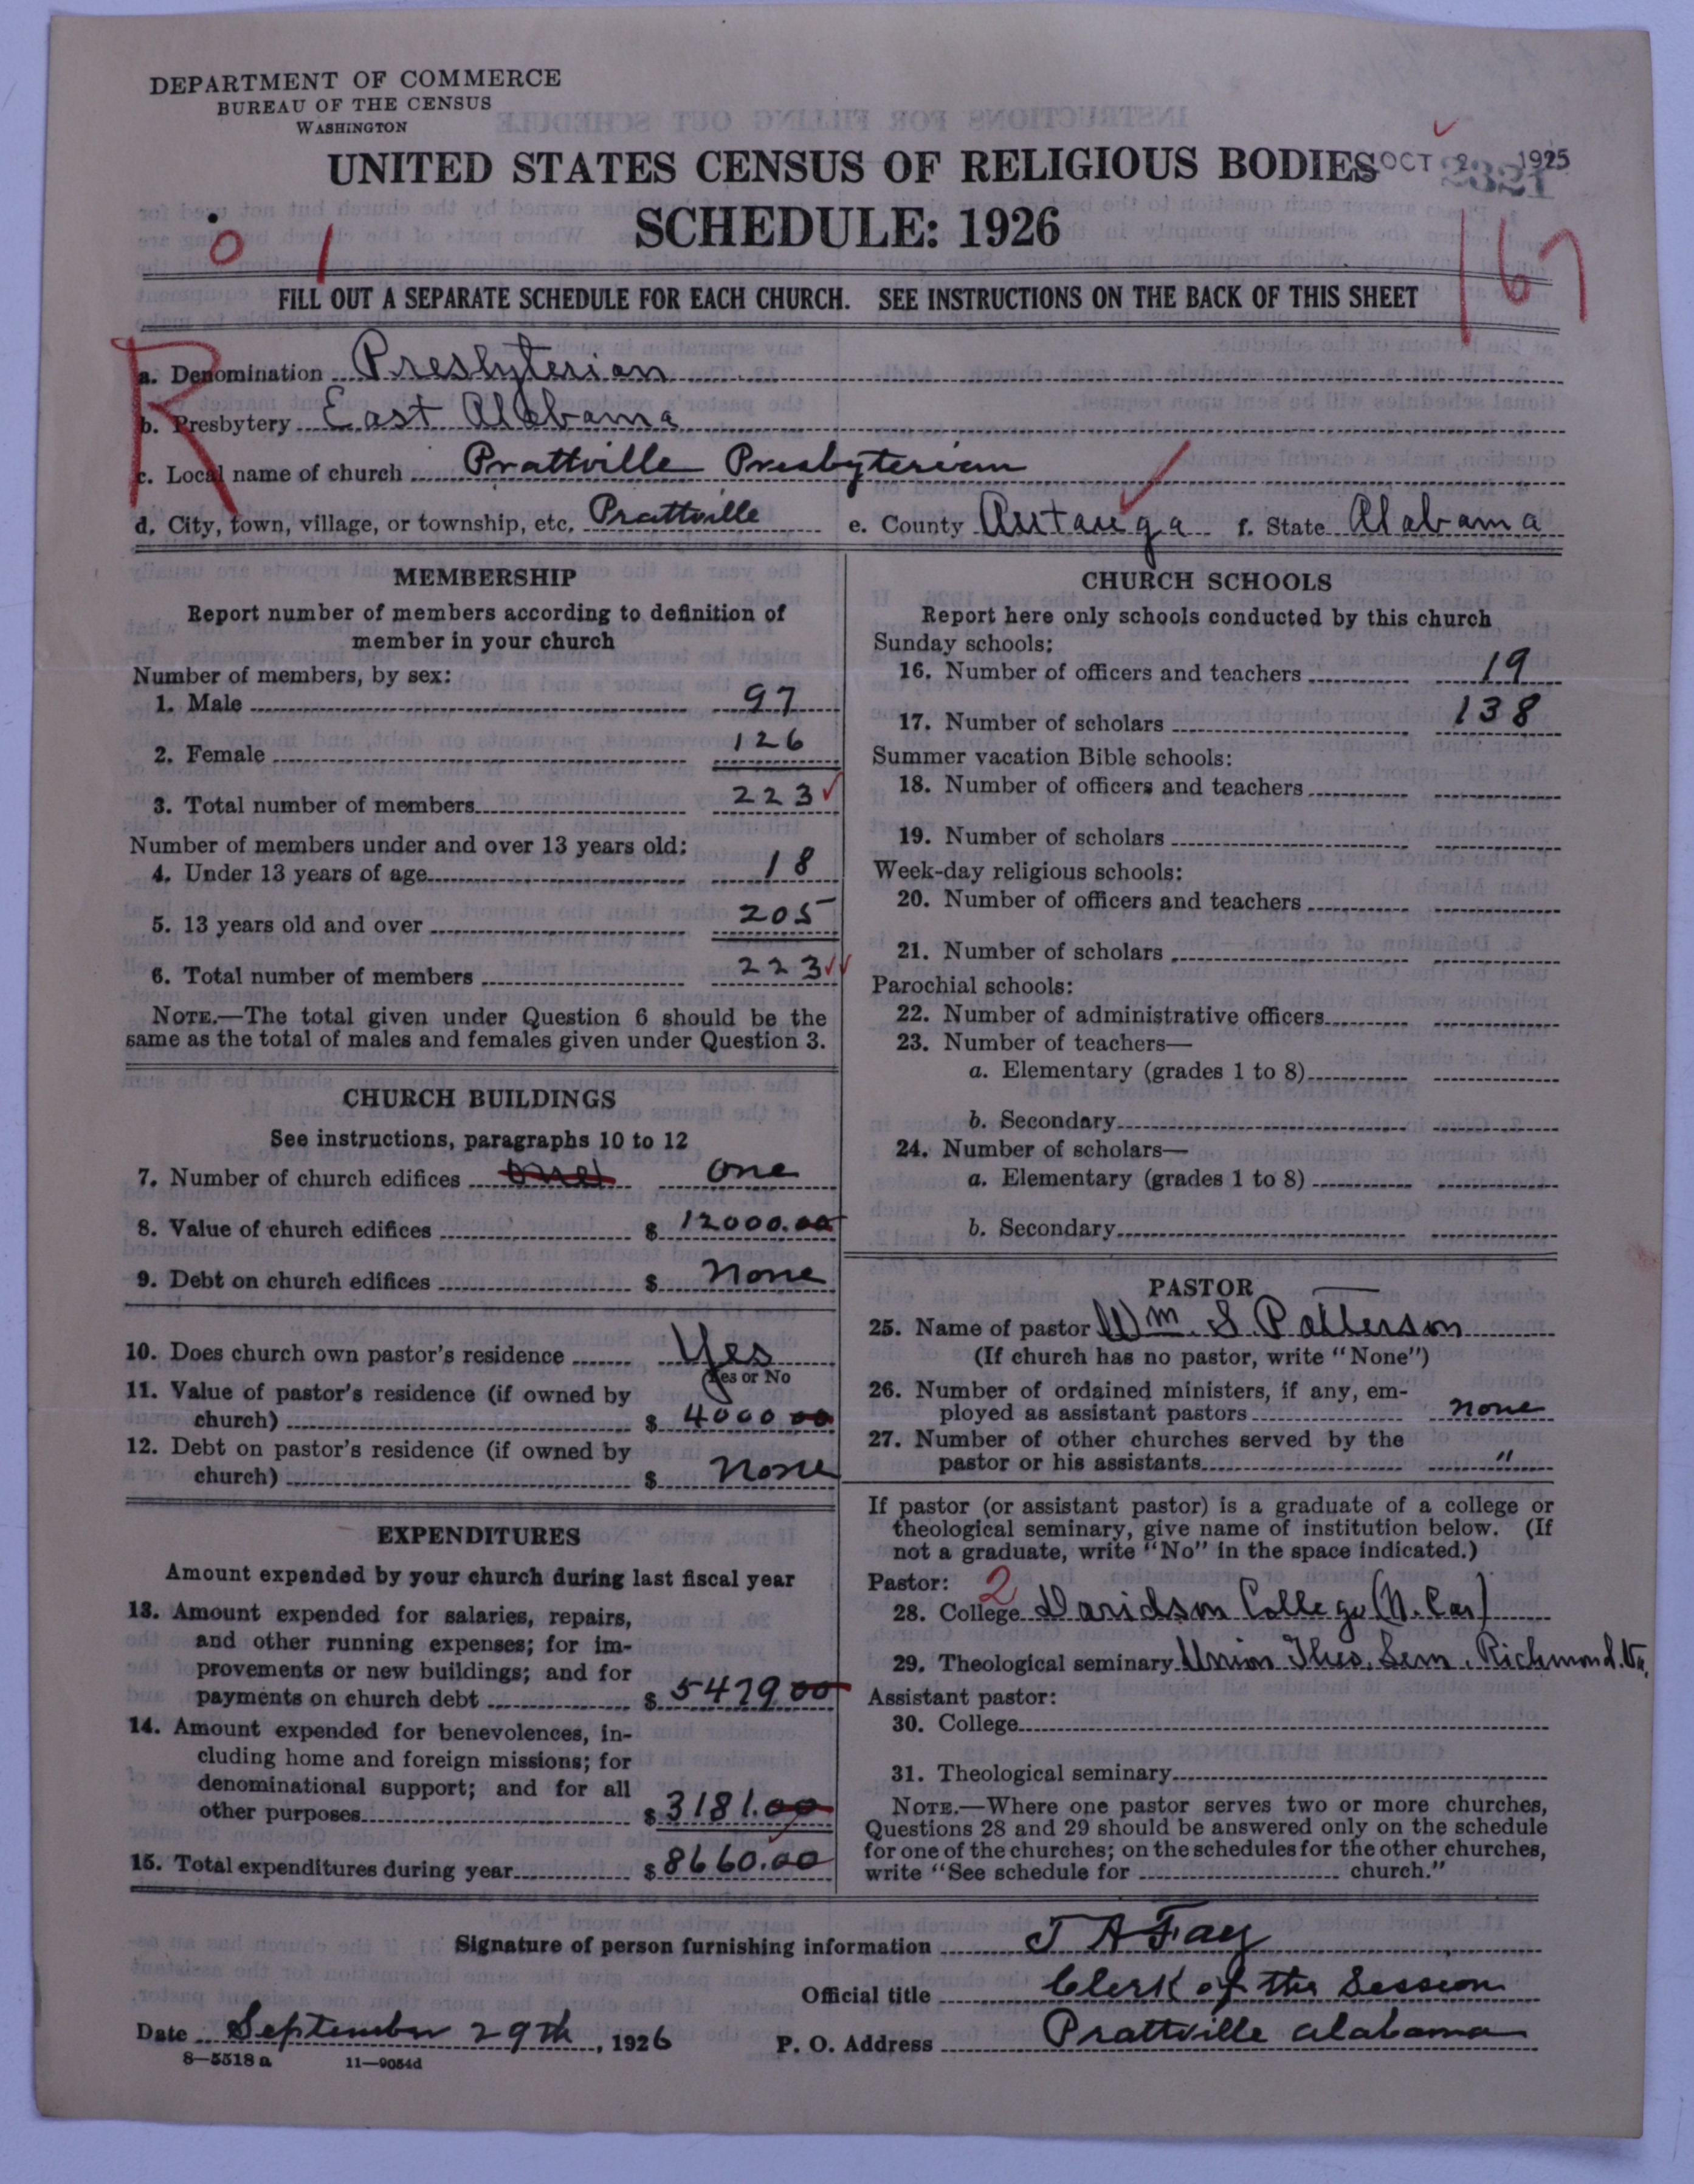 DEPARTMENT OF COMMERCE
BUREAU OF THE CENSUS
WASHINGTON
UNITED STATES CENSUS OF RELIGIOUS BODIES
OCT 2 1925
2321
SCHEDULE: 1926
0 1
167
FILL OUT A SEPARATE SCHEDULE FOR EACH CHURCH. SEE INSTRUCTIONS ON THE BACK OF THIS SHEET
R
a. Denomination Presbyterian
b. Presbytery East Alabama
c. Local name of church Prattville Presbyterian
d. City, town, village, or township, etc. Prattville e. County Autauga f. State Alabama
MEMBERSHIP
Report number of members according to definition of
member in your church
Number of members, by sex:
1. Male 97
2. Female 126
3. Total number of members 223
Number of members under and over 13 years old:
4. Under 13 years of age 18
5. 13 years old and over 205
6. Total number of members 223
NOTE.—The total given under Question 6 should be the
same as the total of males and females given under Question 3.
CHURCH BUILDINGS
See instructions, paragraphs 10 to 12
7. Number of church edifices one
8. Value of church edifices $ 12000.00
9. Debt on church edifices $ None
10. Does church own pastor's residence Yes
Yes or No
11. Value of pastor's residence (if owned by
church) $ 4000 00
12. Debt on pastor's residence (if owned by
church) $ None
EXPENDITURES
Amount expended by your church during last fiscal year
13. Amount expended for salaries, repairs,
and other running expenses; for im-
provements or new buildings; and for
payments on church debt $ 5479 00
14. Amount expended for benevolences, in-
cluding home and foreign missions; for
denominational support; and for all
other purposes $ 3181.00
15. Total expenditures during year $ 8660.00
CHURCH SCHOOLS
Report here only schools conducted by this church
Sunday schools:
16. Number of officers and teachers 19
17. Number of scholars 138
Summer vacation Bible schools:
18. Number of officers and teachers
19. Number of scholars
Week-day religious schools:
20. Number of officers and teachers
21. Number of scholars
Parochial schools:
22. Number of administrative officers
23. Number of teachers—
a. Elementary (grades 1 to 8)
b. Secondary
24. Number of scholars—
a. Elementary (grades 1 to 8)
b. Secondary
PASTOR
25. Name of pastor Wm. S Patterson
(If church has no pastor, write "None")
26. Number of ordained ministers, if any, em-
ployed as assistant pastors none
27. Number of other churches served by the
pastor or his assistants "
If pastor (or assistant pastor) is a graduate of a college or
theological seminary, give name of institution below. (If
not a graduate, write "No" in the space indicated.)
Pastor: 2
28. College Davidson College (N. Car)
29. Theological seminary Union Theo. Sem. Richmond. Va.
Assistant pastor:
30. College
31. Theological seminary
NOTE.—Where one pastor serves two or more churches,
Questions 28 and 29 should be answered only on the schedule
for one of the churches; on the schedules for the other churches,
write "See schedule for church."
Signature of person furnishing information J A Fay
Official title Clerk of the Session
Date September 29th, 1926 P. O. Address Prattville alabama
8—5518 a 11—9054d